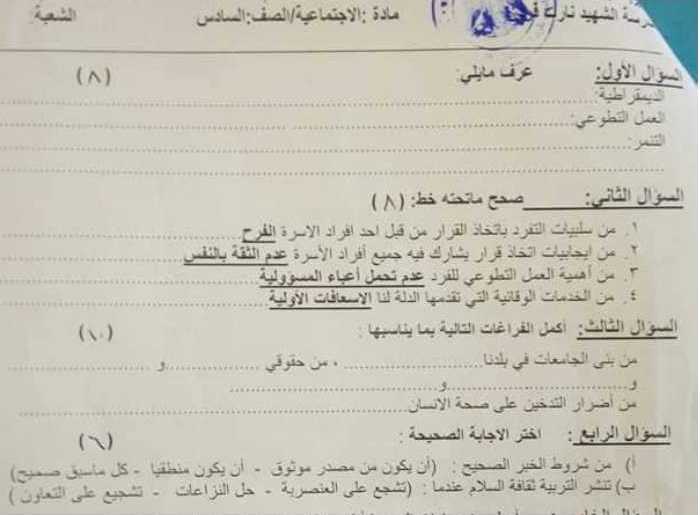 رسة الشهيد نارت مادة :الاجتماعية/الصف:السادس الشعبة:
السؤال الأول: عرف مايلي: (٨)
الديمقراطية:
العمل التطوعي:
التنمر:
السؤال الثاني: صحح ماتحته خط: (٨)
١. من سلبيات التفرد باتخاذ القرار من قبل احد افراد الاسرة الفرح
٢. من ايجابيات اتخاذ قرار يشارك فيه جميع أفراد الأسرة عدم الثقة بالنفس
٣. من أهمية العمل التطوعي للفرد عدم تحمل أعباء المسؤولية
٤. من الخدمات الوقائية التي تقدمها الدلة لنا الاسعافات الأولية
السؤال الثالث: أكمل الفراغات التالية بما يناسبها : (١٠)
من بنى الجامعات في بلدنا ، من حقوقي و
و و
من أضرار التدخين على صحة الانسان
السؤال الرابع : اختر الاجابة الصحيحة : (٦)
أ) من شروط الخبر الصحيح : (أن يكون من مصدر موثوق - أن يكون منطقيا - كل ماسبق صحيح)
ب) تنشر التربية ثقافة السلام عندما : (تشجع على العنصرية - حل النزاعات - تشجيع على التعاون )